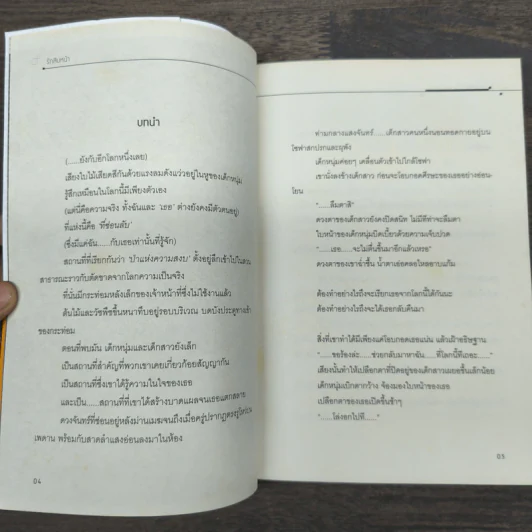 บทนำ
(......ยังกับอีกโลกหนึ่งเลย)
เสียงใบไม้เสียดสีกันด้วยแรงลมดังแว่วอยู่ในหูของเด็กหนุ่ม
รู้สึกเหมือนในโลกนี้มีเพียงตัวเอง
(แต่นี่คือความจริง ทั้งฉันและ 'เธอ' ต่างยังคงมีตัวตนอยู่)
ที่แห่งนี้คือ 'ที่ซ่อนลับ'
(ซึ่งมีแค่ฉัน......กับเธอเท่านั้นที่รู้จัก)
สถานที่ที่เรียกกันว่า 'ป่าแห่งความสงบ' ตั้งอยู่ลึกเข้าไปในสวน
สาธารณะราวกับตัดขาดจากโลกความเป็นจริง
ที่นั่นมีกระท่อมหลังเล็กของเจ้าหน้าที่ซึ่งไม่ใช้งานแล้ว
ต้นไม้และวัชพืชขึ้นหนาทึบอยู่รอบบริเวณ บดบังประตูทางเข้า
ของกระท่อม
ตอนที่พบมัน เด็กหนุ่มและเด็กสาวยังเล็ก
เป็นสถานที่สำคัญที่พวกเขาเคยเกี่ยวก้อยสัญญากัน
เป็นสถานที่ซึ่งเขาได้รู้ความในใจของเธอ
และเป็น......สถานที่ที่เขาได้สร้างบาดแผลจนเธอแตกสลาย
ดวงจันทร์ที่ซ่อนอยู่หลังม่านเมฆจนถึงเมื่อครู่ปรากฏตรงรูโหว่บน
เพดาน พร้อมกับสาดลำแสงอ่อนลงมาในห้อง
04
ท่ามกลางแสงจันทร์......เด็กสาวคนหนึ่งนอนทอดกายอยู่บน
โซฟาสกปรกและผุพัง
เด็กหนุ่มค่อยๆ เคลื่อนตัวเข้าไปใกล้โซฟา
เขานั่งลงข้างเด็กสาว ก่อนจะโอบกอดศีรษะของเธออย่างอ่อน-
โยน
"......ลืมตาสิ"
ดวงตาของเด็กสาวยังคงปิดสนิท ไม่มีทีท่าจะลืมตา
ใบหน้าของเด็กหนุ่มบิดเบี้ยวด้วยความเจ็บปวด
"......เธอ......จะไม่ตื่นขึ้นมาอีกแล้วเหรอ"
ดวงตาของเขาฉ่ำชื้น น้ำตาเอ่อคลอไหลอาบแก้ม
ต้องทำอย่างไรถึงจะเรียกเธอจากโลกนี้ได้กันนะ
ต้องทำอย่างไรถึงจะได้เธอกลับคืนมา
สิ่งที่เขาทำได้มีเพียงแค่โอบกอดเธอแน่น แล้วเฝ้าอธิษฐาน
เสียงนั้นทำให้เปลือกตาที่ปิดอยู่ของเด็กสาวเผยอขึ้นเล็กน้อย
เด็กหนุ่มเบิกตากว้าง จ้องมองใบหน้าของเธอ
เปลือกตาของเธอเปิดขึ้นช้าๆ
"......โล่งอกไปที......"
05